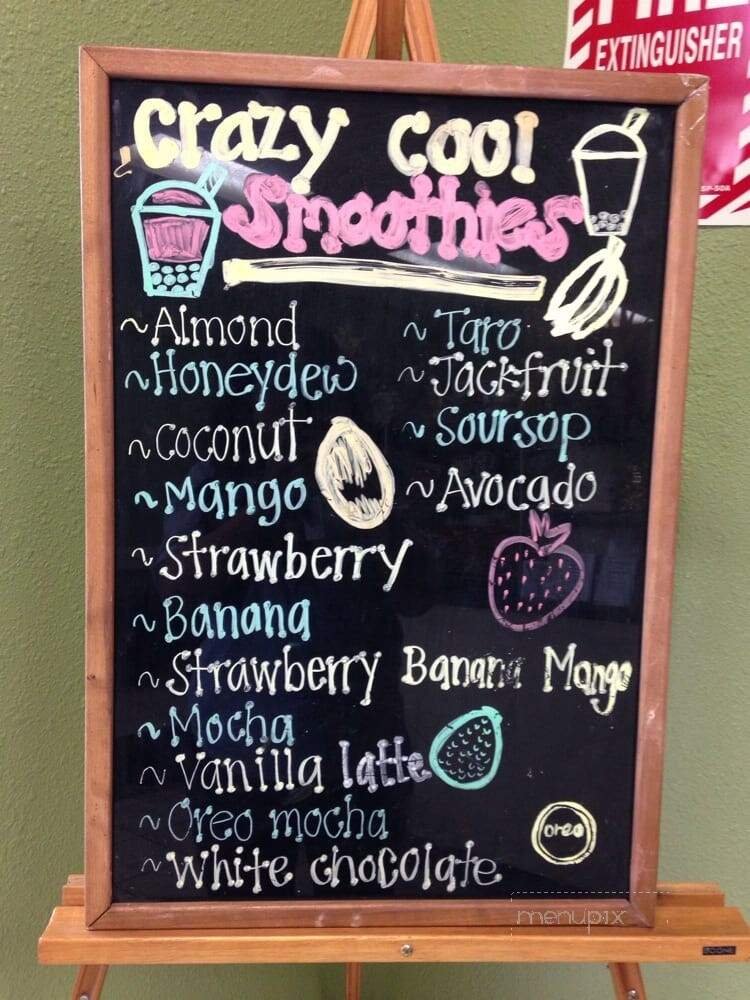 EXTINGUISHER
SP-50A
Crazy Cool
Smoothies
~Almond
~Honeydew
~Coconut
~Mango
~Strawberry
~Banana
~Strawberry Banana Mango
~Mocha
~Vanilla latte
~Oreo mocha
~White chocolate
~Taro
~Jackfruit
~Soursop
~Avocado
oreo
menupix